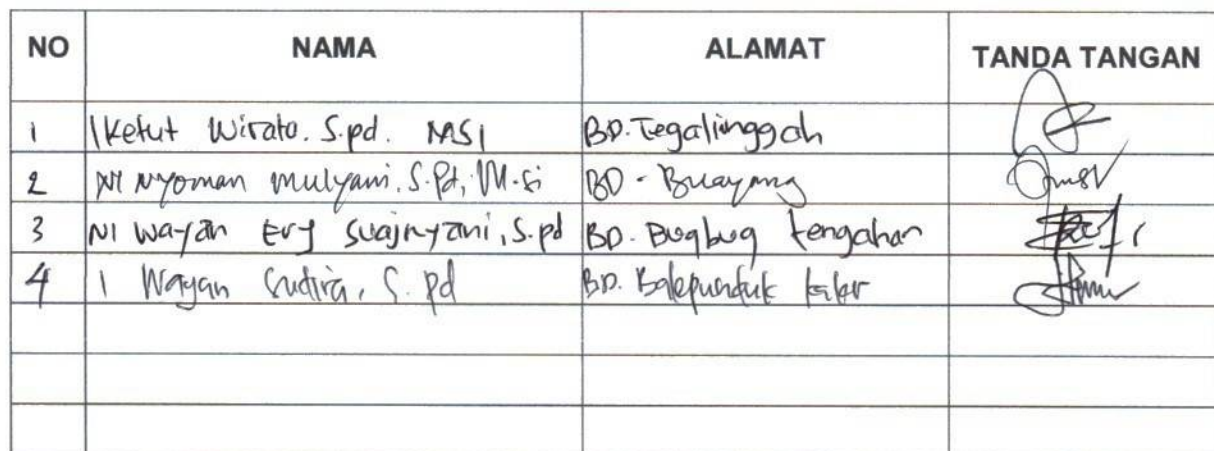 NO NAMA ALAMAT TANDA TANGAN
1 I Ketut Wirata. S.pd. MSI BD. Tegallinggah
2 NI Nyoman Mulyani, S.Pd, M.si BD - Buayang
3 NI Wayan Ery Suajnyani, S.pd BD. Bugbug tengahan
4 I Wayan Sudira, S.Pd BD. Balepunduk